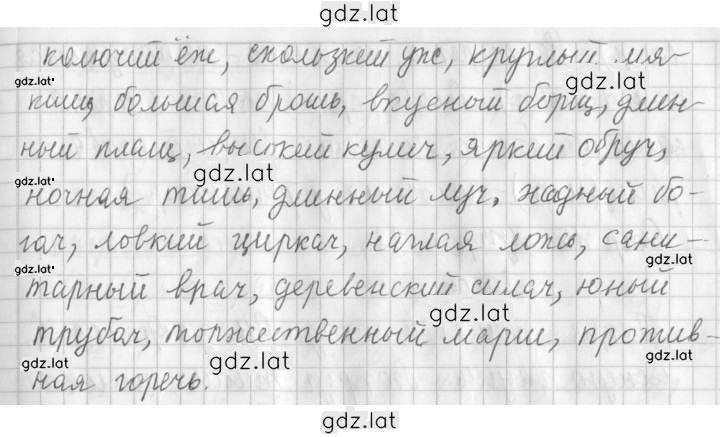 gdz.lat
колючий ёж, скользкий уж, круглый мя-
gdz.lat
gdz.lat
киш, большая брошь, вкусный борщ, длин-
ный плащ, высокий кулич, яркий обруч,
gdz.lat
gdz.lat
ночная тишь, длинный луч, жадный бо-
гач, ловкий циркач, наглая ложь, сани-
gdz.lat
gdz.lat
тарный врач, деревенский силач, юный
gdz.lat
трубач, торжественный марш, против-
gdz.lat
gdz.lat
gdz.lat
ная горечь.
gdz.lat